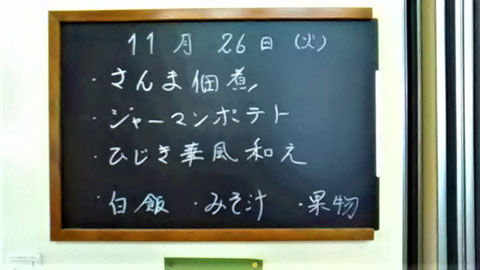 11月26日(火)
・さんま佃煮
・ジャーマンポテト
・ひじき華風和え
・白飯 ・みそ汁 ・果物